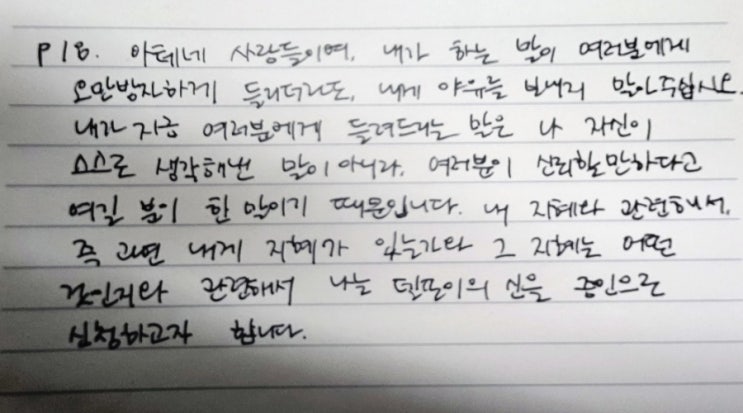 P18. 아테네 사람들이여, 내가 하는 말이 여러분에게
오만방자하게 들리더라도, 내게 야유를 보내지 말아주십시오.
내가 지금 여러분에게 들려드리는 말은 나 자신이
스스로 생각해낸 말이 아니라, 여러분이 신뢰할만하다고
여길 분이 한 말이기 때문입니다. 내 지혜와 관련해서,
즉 과연 내게 지혜가 있는가와 그 지혜는 어떤
것인지와 관련해서 나는 델포이의 신을 증인으로
신청하고자 합니다.